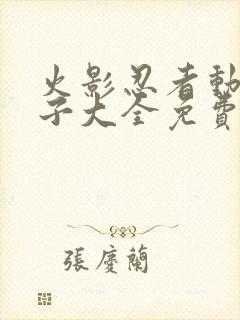 火影忍者動
子大全免費
張慶蘭